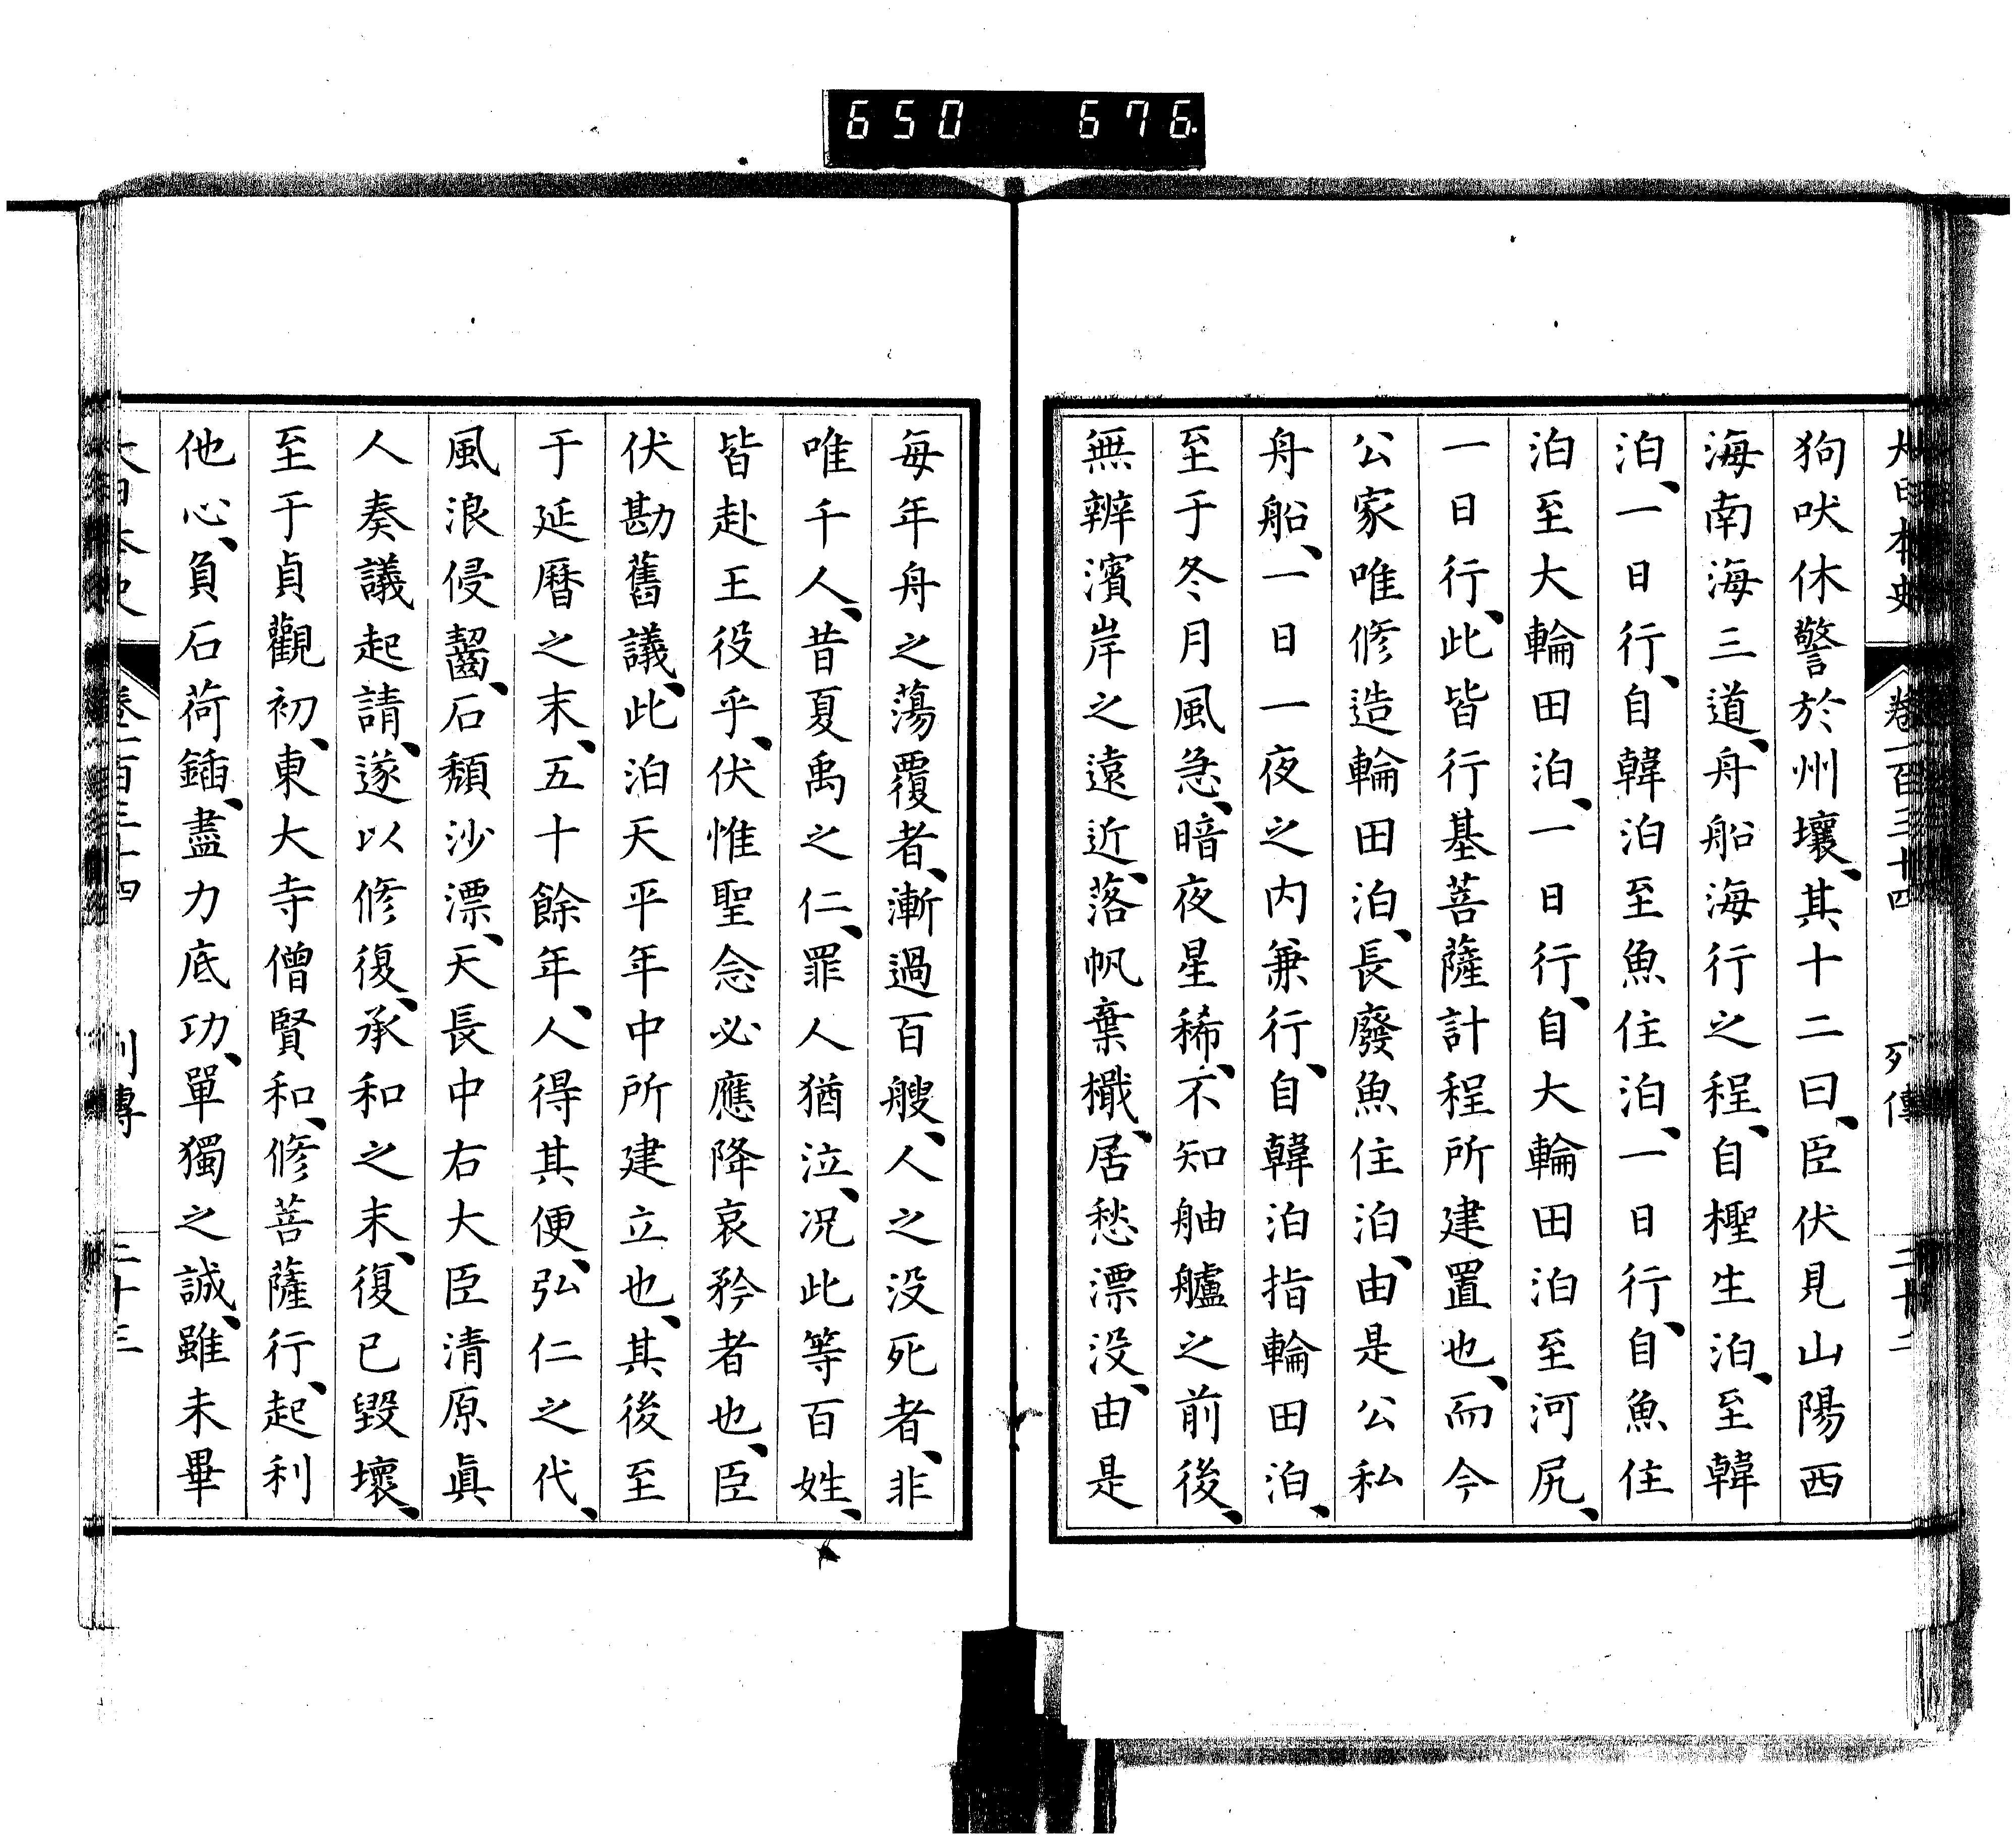 650 676
大日本史 卷一百三十四 列傳 二十二
狗吠休警於州壤、其十二曰、臣伏見山陽西
海南海三道、舟船海行之程、自檉生泊、至韓
泊、一日行、自韓泊至魚住泊、一日行、自魚住
泊至大輪田泊、一日行、自大輪田泊至河尻、
一日行、此皆行基菩薩計程所建置也、而今
公家唯修造輪田泊、長廢魚住泊、由是公私
舟船、一日一夜之内兼行、自韓泊指輪田泊、
至于冬月風急、暗夜星稀、不知舳艫之前後、
無辨濱岸之遠近、落帆棄檝、居愁漂没、由是
每年舟之蕩覆者、漸過百艘、人之没死者、非
唯千人、昔夏禹之仁、罪人猶泣、况此等百姓、
皆赴王役乎、伏惟聖念必應降哀矜者也、臣
伏勘舊議、此泊天平年中所建立也、其後至
于延曆之末、五十餘年、人得其便、弘仁之代、
風浪侵齧、石頽沙漂、天長中右大臣清原眞
人奏議起請、遂以修復、承和之末、復已毀壞、
至于貞觀初、東大寺僧賢和、修菩薩行、起利
他心、負石荷鍤、盡力底功、單獨之誠、雖未畢
大日本史 卷一百三十四 列傳 二十三